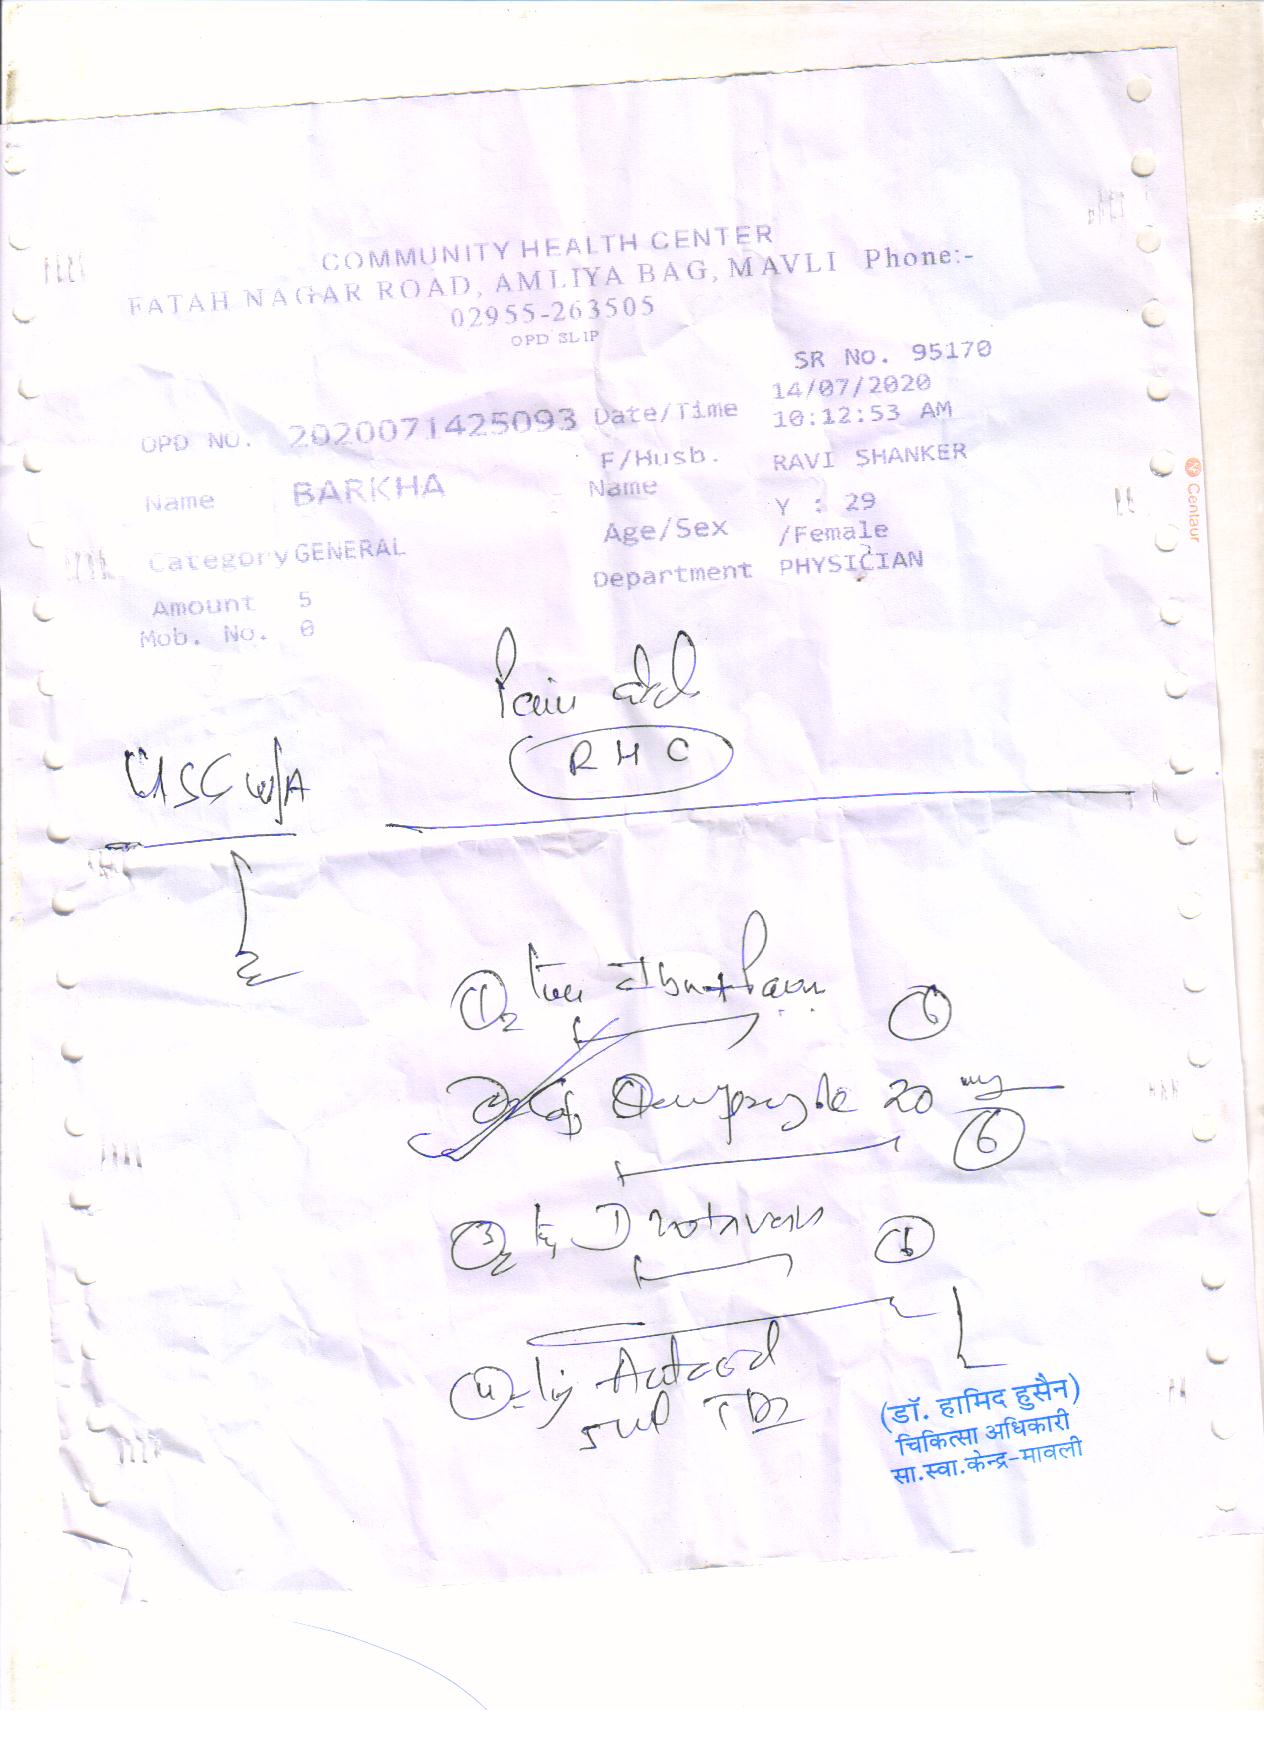 COMMUNITY HEALTH CENTER
FATAH NAGAR ROAD, AMLIYA BAG, MAVLI Phone:-
02955-263505
OPD SLIP
SR No. 95170
OPD NO. 2020071425093 Date/Time 14/07/2020 10:12:53 AM
Name BARKHA F/Husb. Name RAVI SHANKER
Age/Sex Y : 29 /Female
Category GENERAL Department PHYSICIAN
Amount 5
Mob. No. 0
Centaur
Pain abd
RHC
USG W/A
① Ibu + Para ⑥
20 mg ⑥
③ ⑥
④
5ml TDS
(डॉ. हामिद हुसैन)
चिकित्सा अधिकारी
सा.स्वा.केन्द्र-मावली